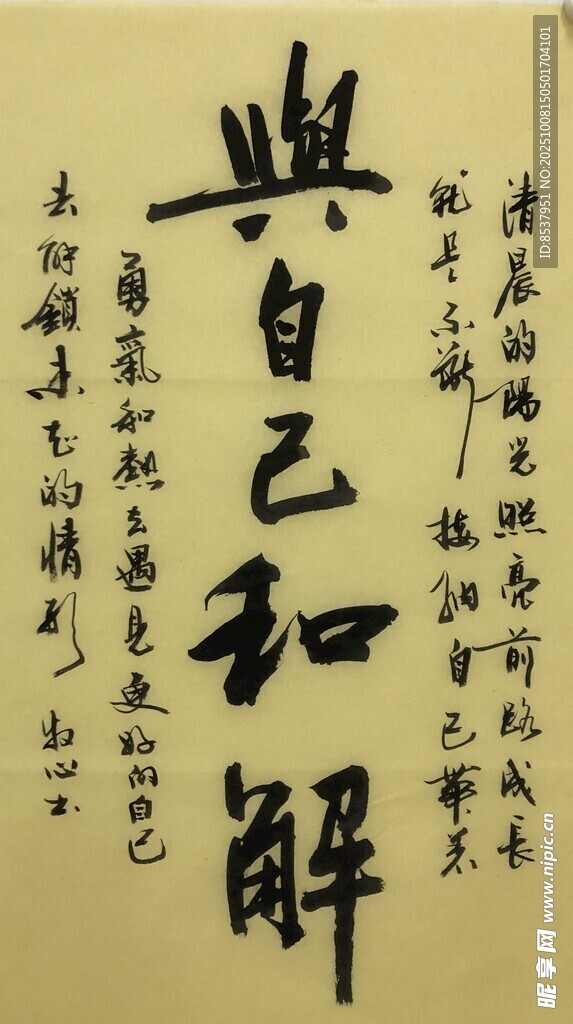 清晨的陽光照亮前路成長
就是不斷接納自己帶著
與自己和解
勇氣和熱去遇見更好的自己
去解鎖未知的情形 牧心书
ID:8537951 NO:20251008150501704101
昵享网 www.nipic.cn